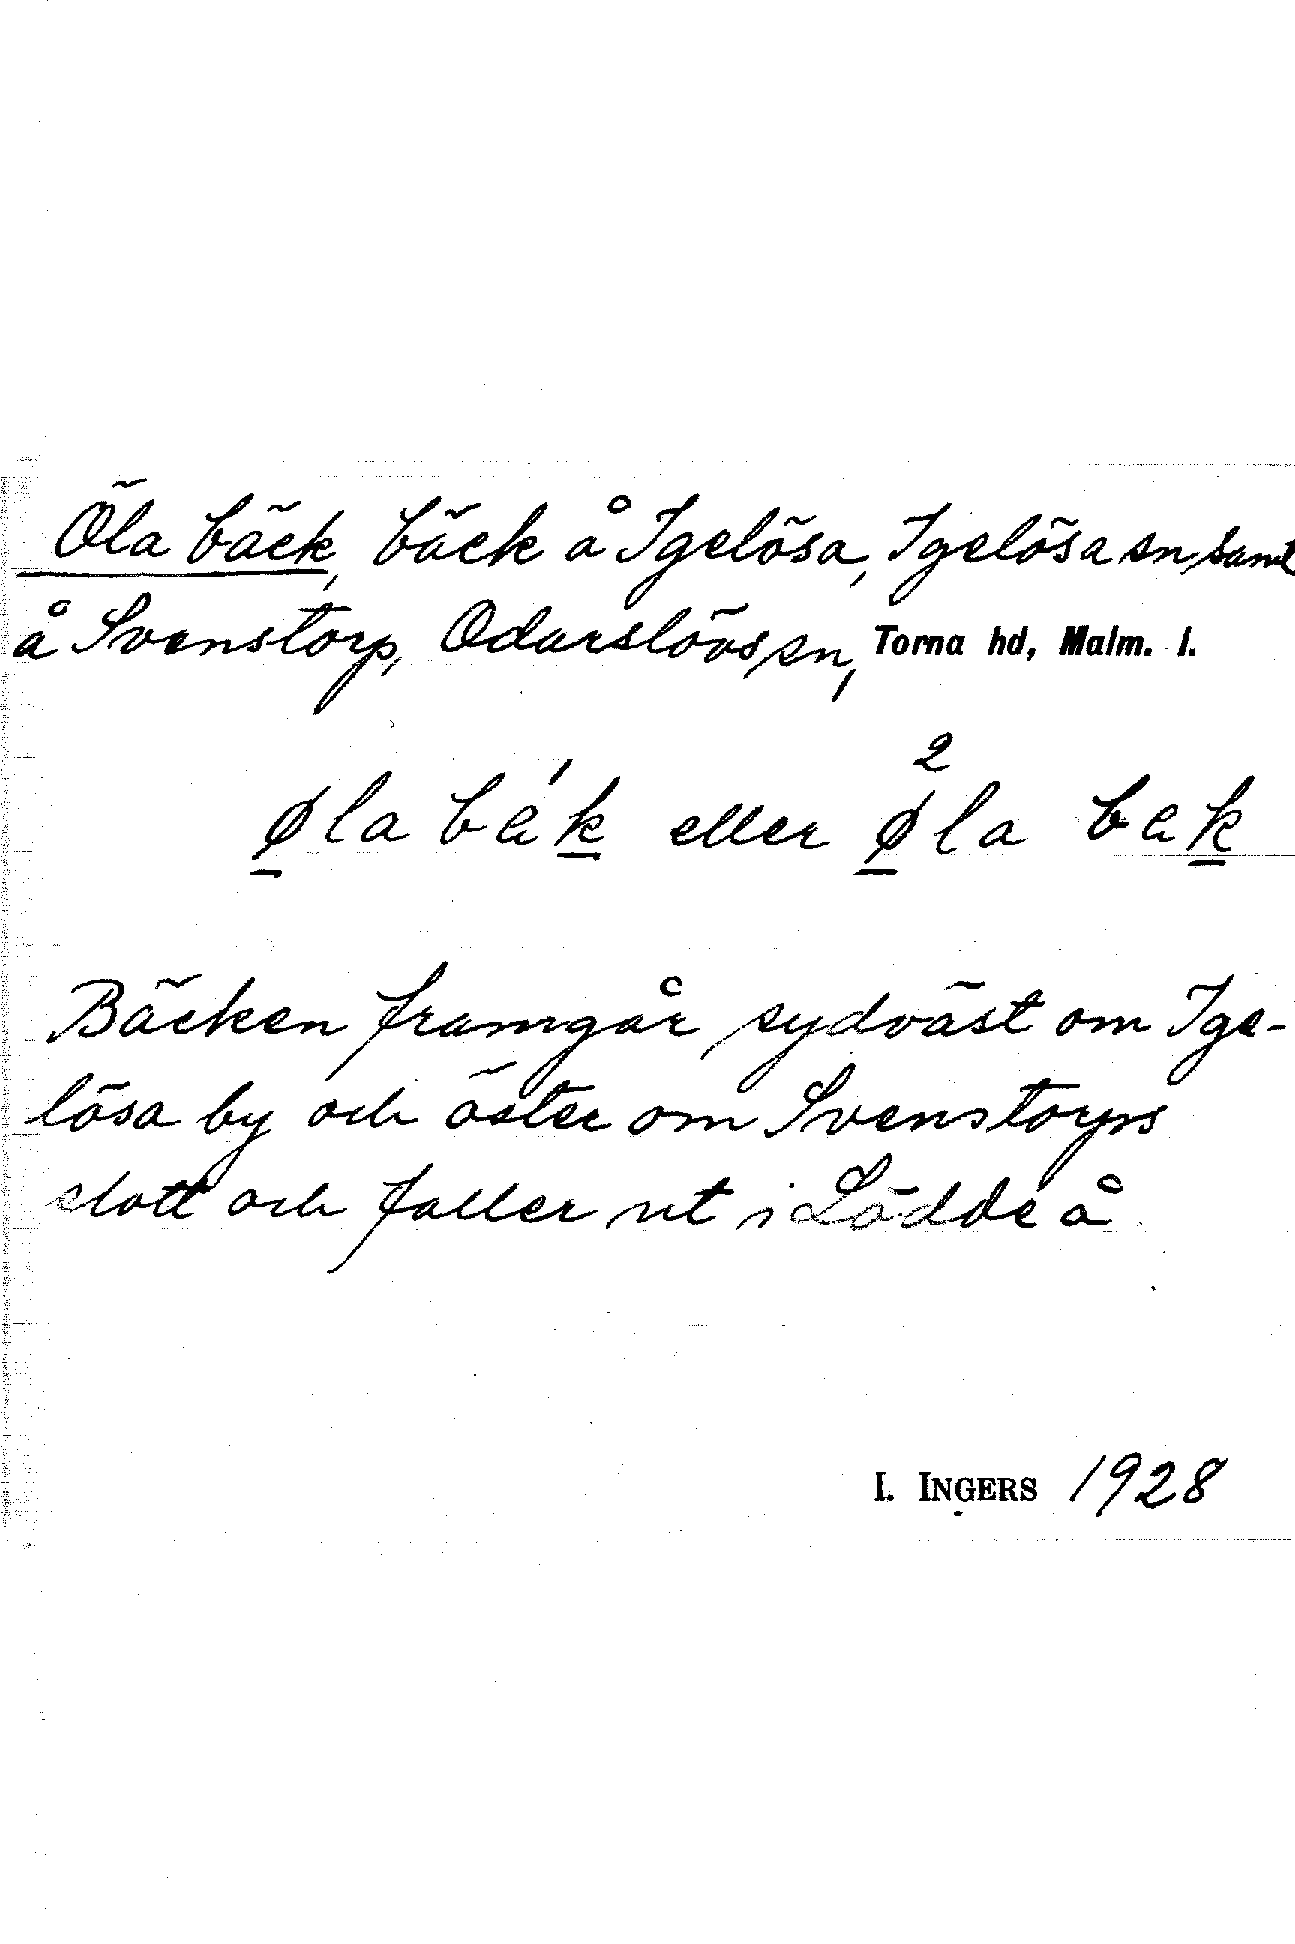 Öla bäck, bäck å Igelösa, Igelösa sn, samt
å Svenstorp, Odarslövs sn, Torna hd, Malm. l.
ø̱la bé̱ḵ eller ø̱²la beḵ
Bäcken framgår sydväst om Ige-
lösa by och öster om Svenstorps
slott och faller ut i Lödde å
I. INGERS 1928